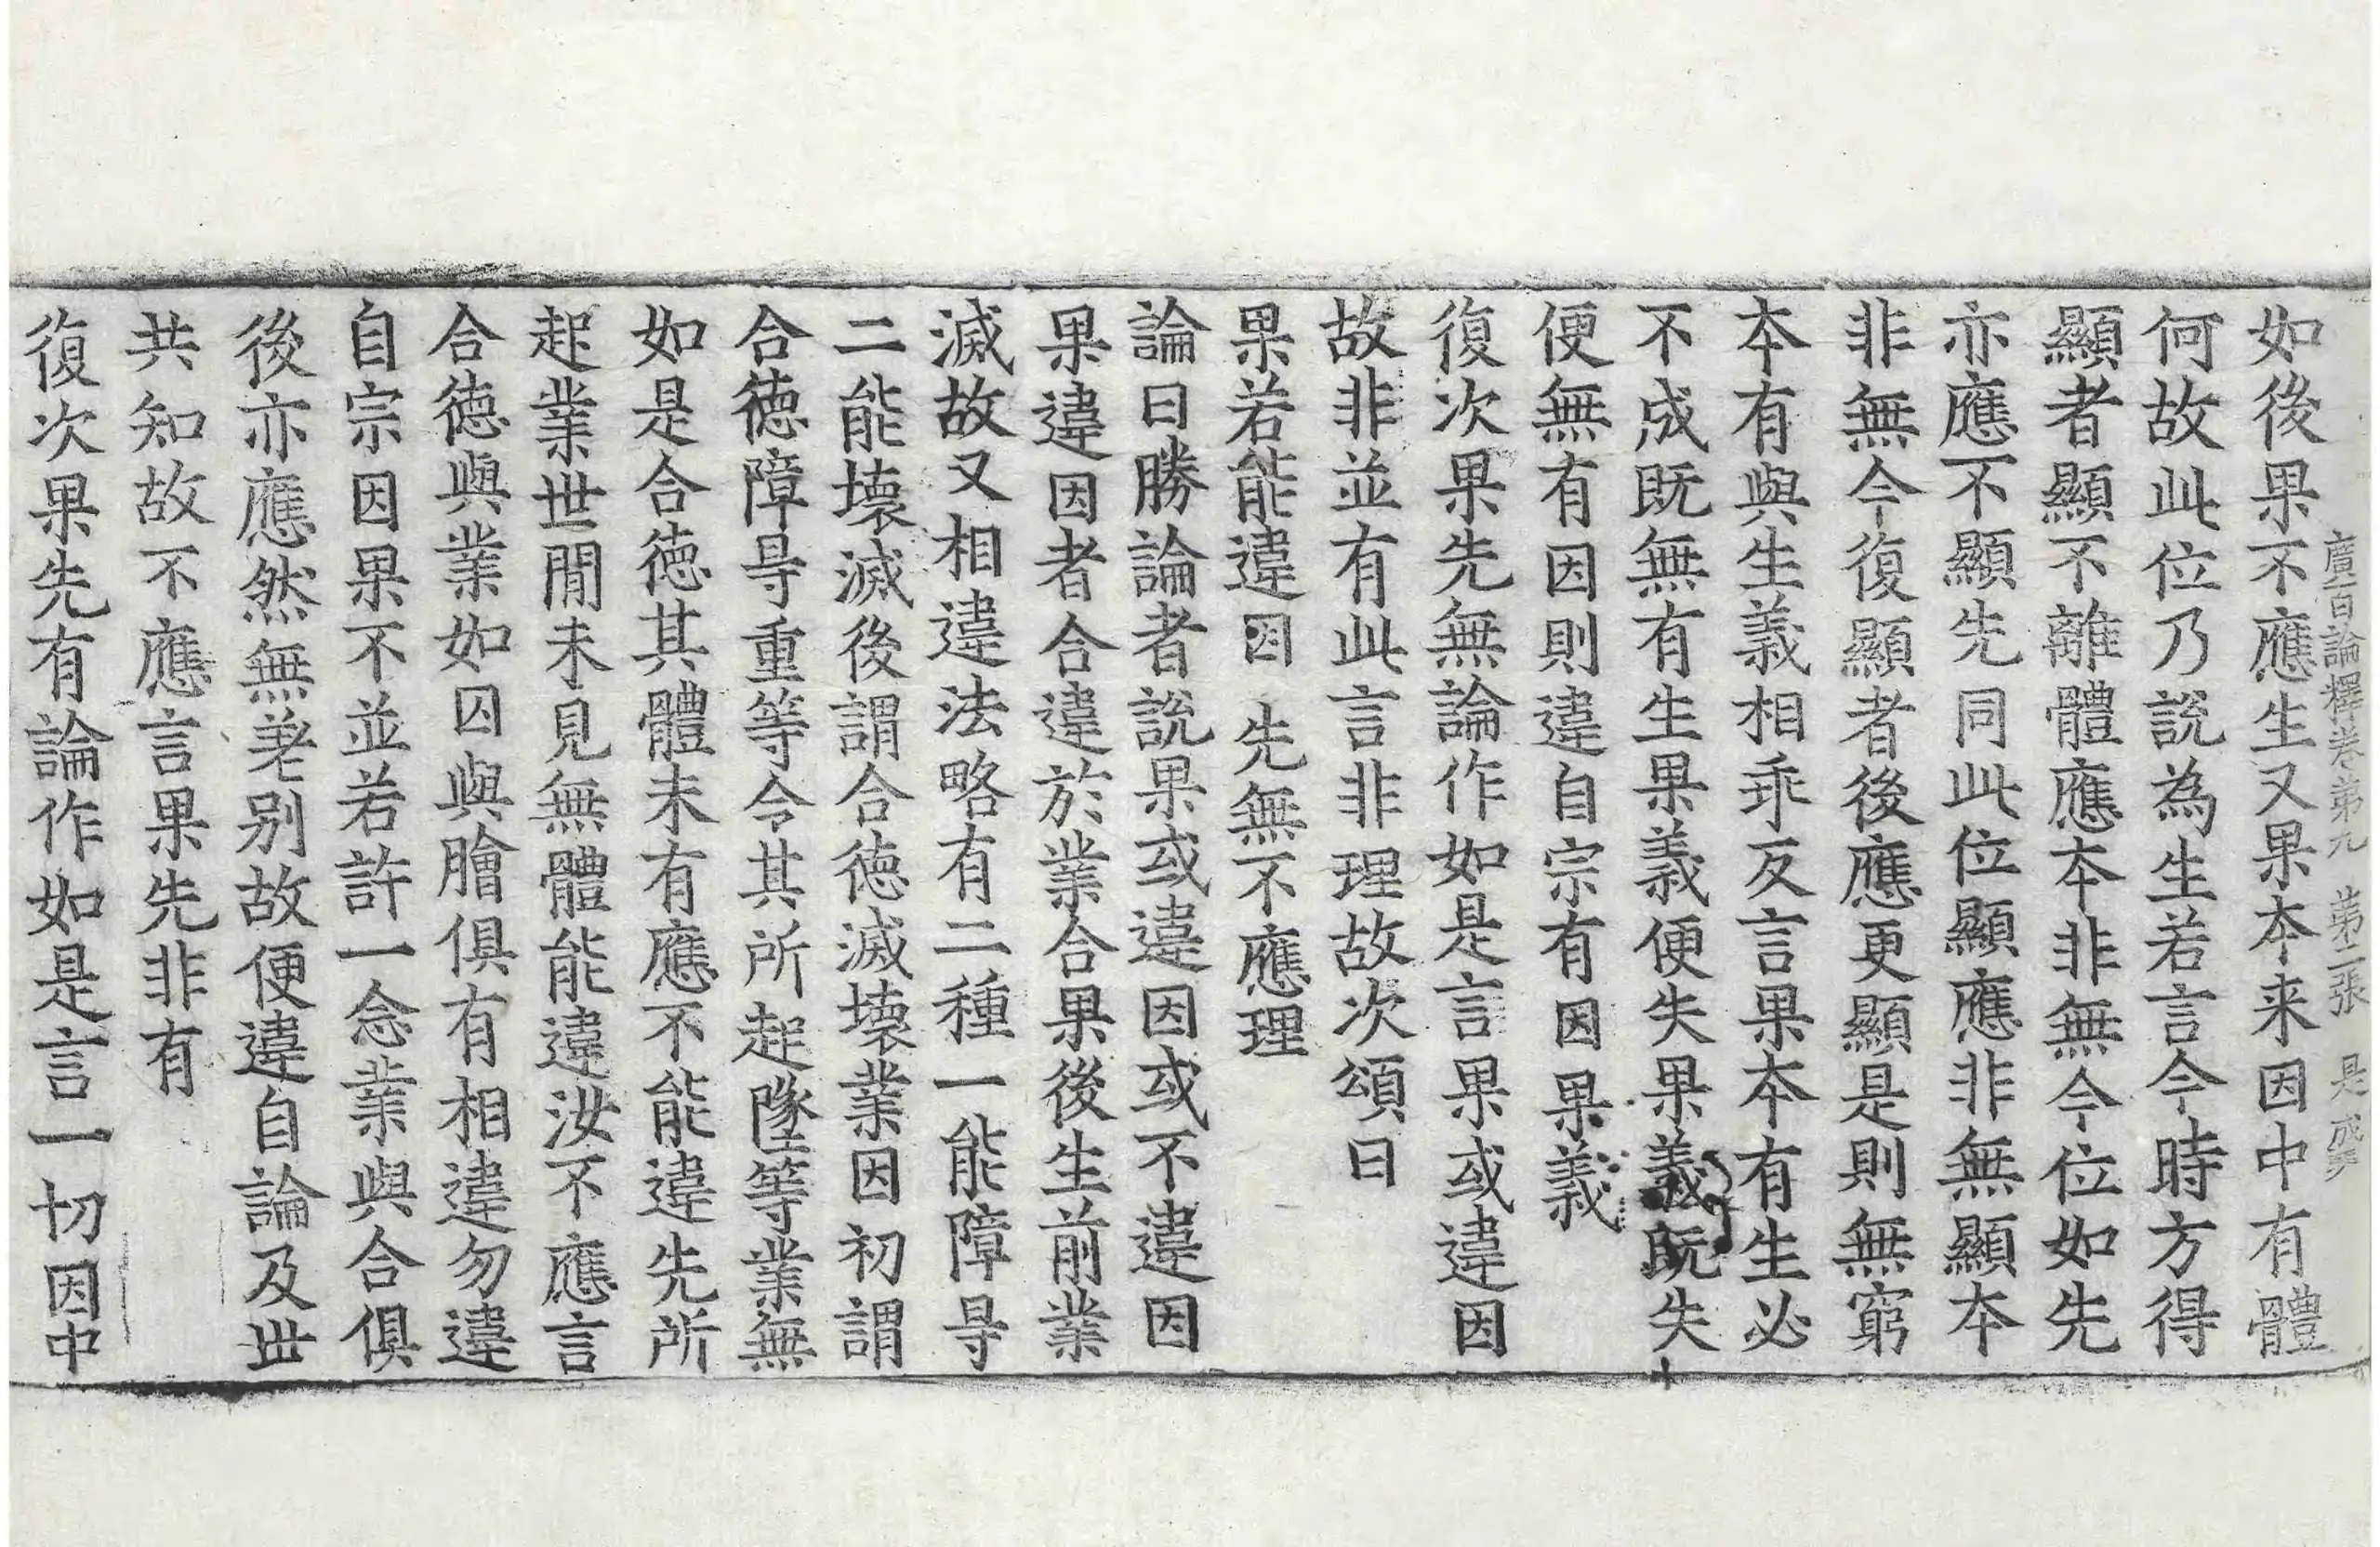 廣百論釋卷第九　第二張　是
如後果不應生又果本来因中有體
何故此位乃說為生若言今時方得
顯者顯不離體應本非無今位如先
亦應不顯先同此位顯應非無顯本
非無今復顯者後應更顯是則無窮
本有與生義相乖反言果本有生必
不成既無有生果義便失果義既失
便無有因則違自宗有因果義
復次果先無論作如是言果或違因
故非並有此言非理故次頌曰
果若能違因　先無不應理
論曰勝論者說果或違因或不違因
果違因者合違於業合果後生前業
滅故又相違法略有二種一能障㝵
二能壞滅後謂合德滅壞業因初謂
合德障㝵重等令其所起墜等業無
如是合德其體未有應不能違先所
起業世間未見無體能違汝不應言
合德與業如囚與膾俱有相違勿違
自宗因果不並若許一念業與合俱
後亦應然無差別故便違自論及世
共知故不應言果先非有
復次果先有論作如是言一切因中